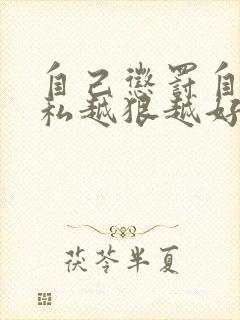 自己惩罚自
私越狠越好
茯苓半夏